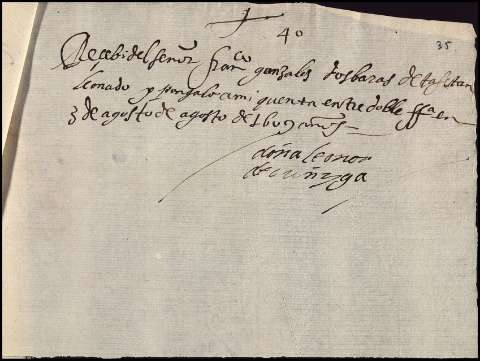 4º
35
Recebi del señor franco gonzales dos baras de tafetan
leonado y pongalo a mi quenta entredoble ffa en
3 de agosto de agosto de 1609 años
doña leonor
de çuñyga